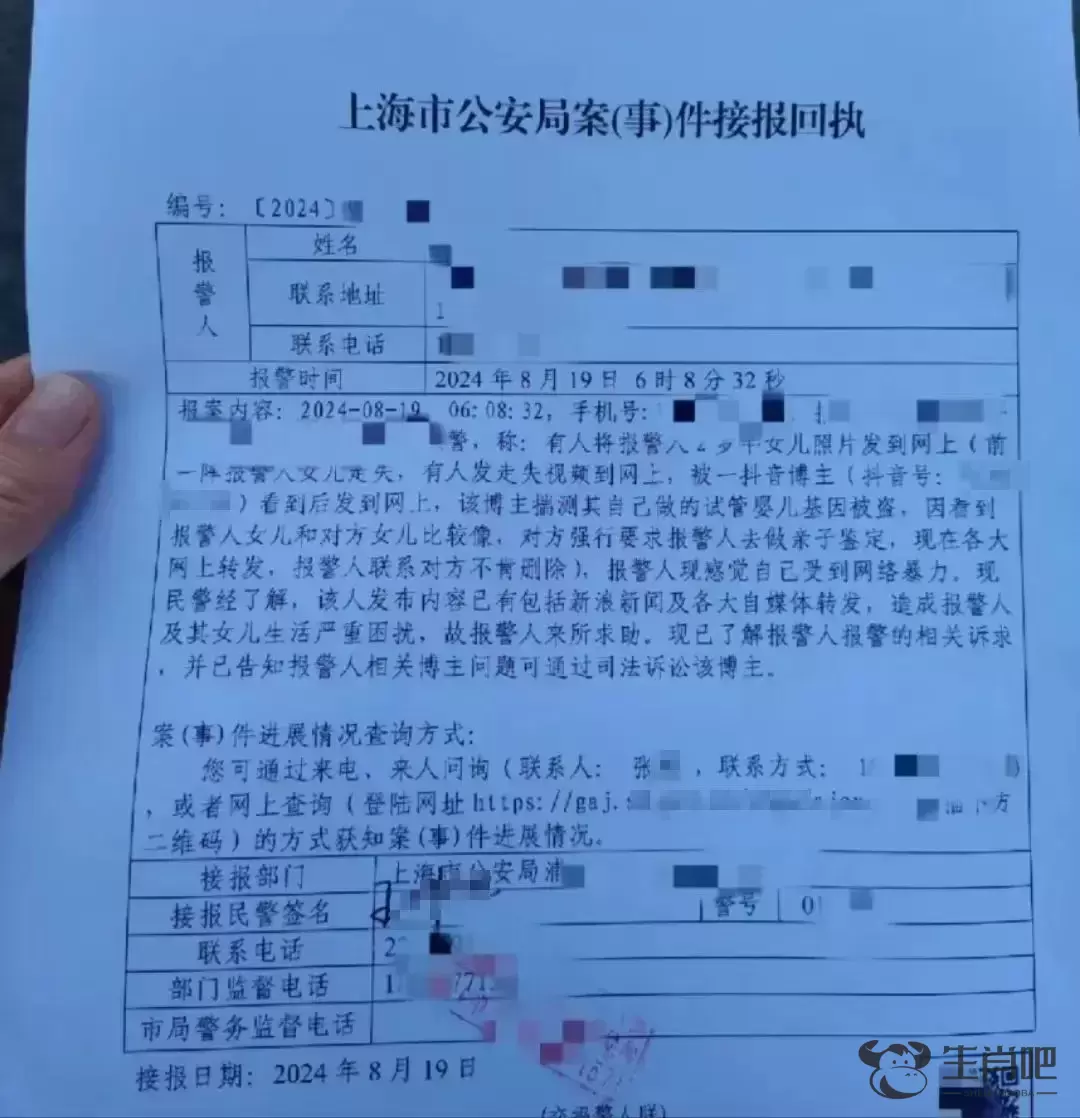 上海市公安局案(事)件接报回执
编号：〔2024〕
报警人
姓名
联系地址
1
联系电话
报警时间 2024年8月19日 6时8分32秒
报案内容：2024-08-19 06:08:32，手机号：
警，称：有人将报警人2岁半女儿照片发到网上（前
一阵报警人女儿走失，有人发走失视频到网上，被一抖音博主（抖音号：
）看到后发到网上，该博主揣测其自己做的试管婴儿基因被盗，因看到
报警人女儿和对方女儿比较像，对方强行要求报警人去做亲子鉴定，现在各大
网上转发，报警人联系对方不肯删除），报警人现感觉自己受到网络暴力。现
民警经了解，该人发布内容已有包括新浪新闻及各大自媒体转发，造成报警人
及其女儿生活严重困扰，故报警人来所求助。现已了解报警人报警的相关诉求
，并已告知报警人相关博主问题可通过司法诉讼该博主。
案(事)件进展情况查询方式：
您可通过来电、来人问询（联系人：张 ，联系方式：1
，或者网上查询（登陆网址https://gaj.
二维码）的方式获知案(事)件进展情况。
接报部门 上海市公安局浦
接报民警签名 警号 0
联系电话 2
部门监督电话 1
市局警务监督电话
接报日期：2024年8月19日
(交报警人联)
生肖吧